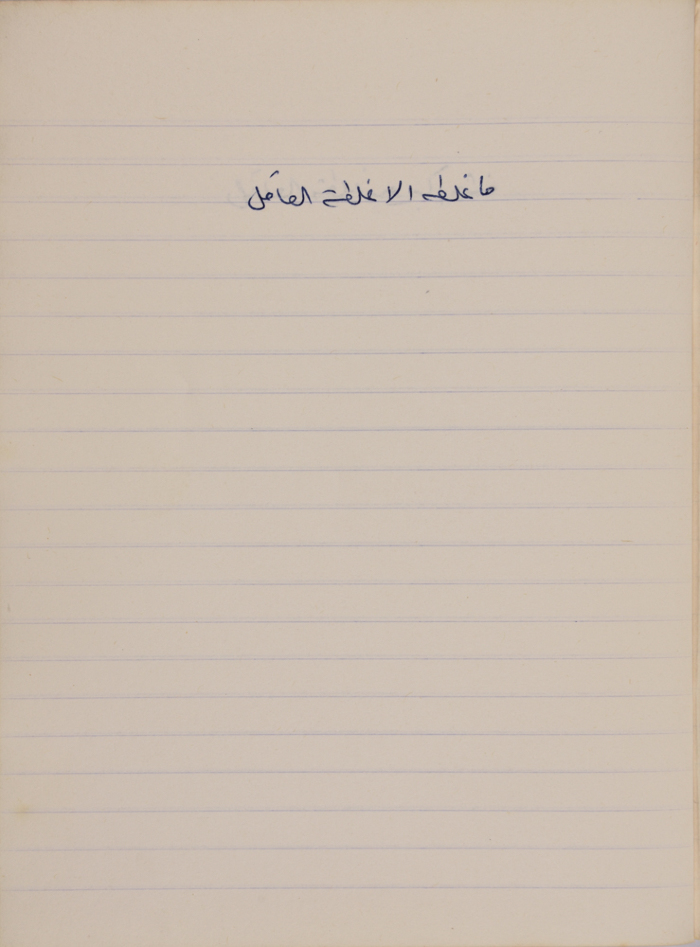 ما غلطه الا غلطة العاقل